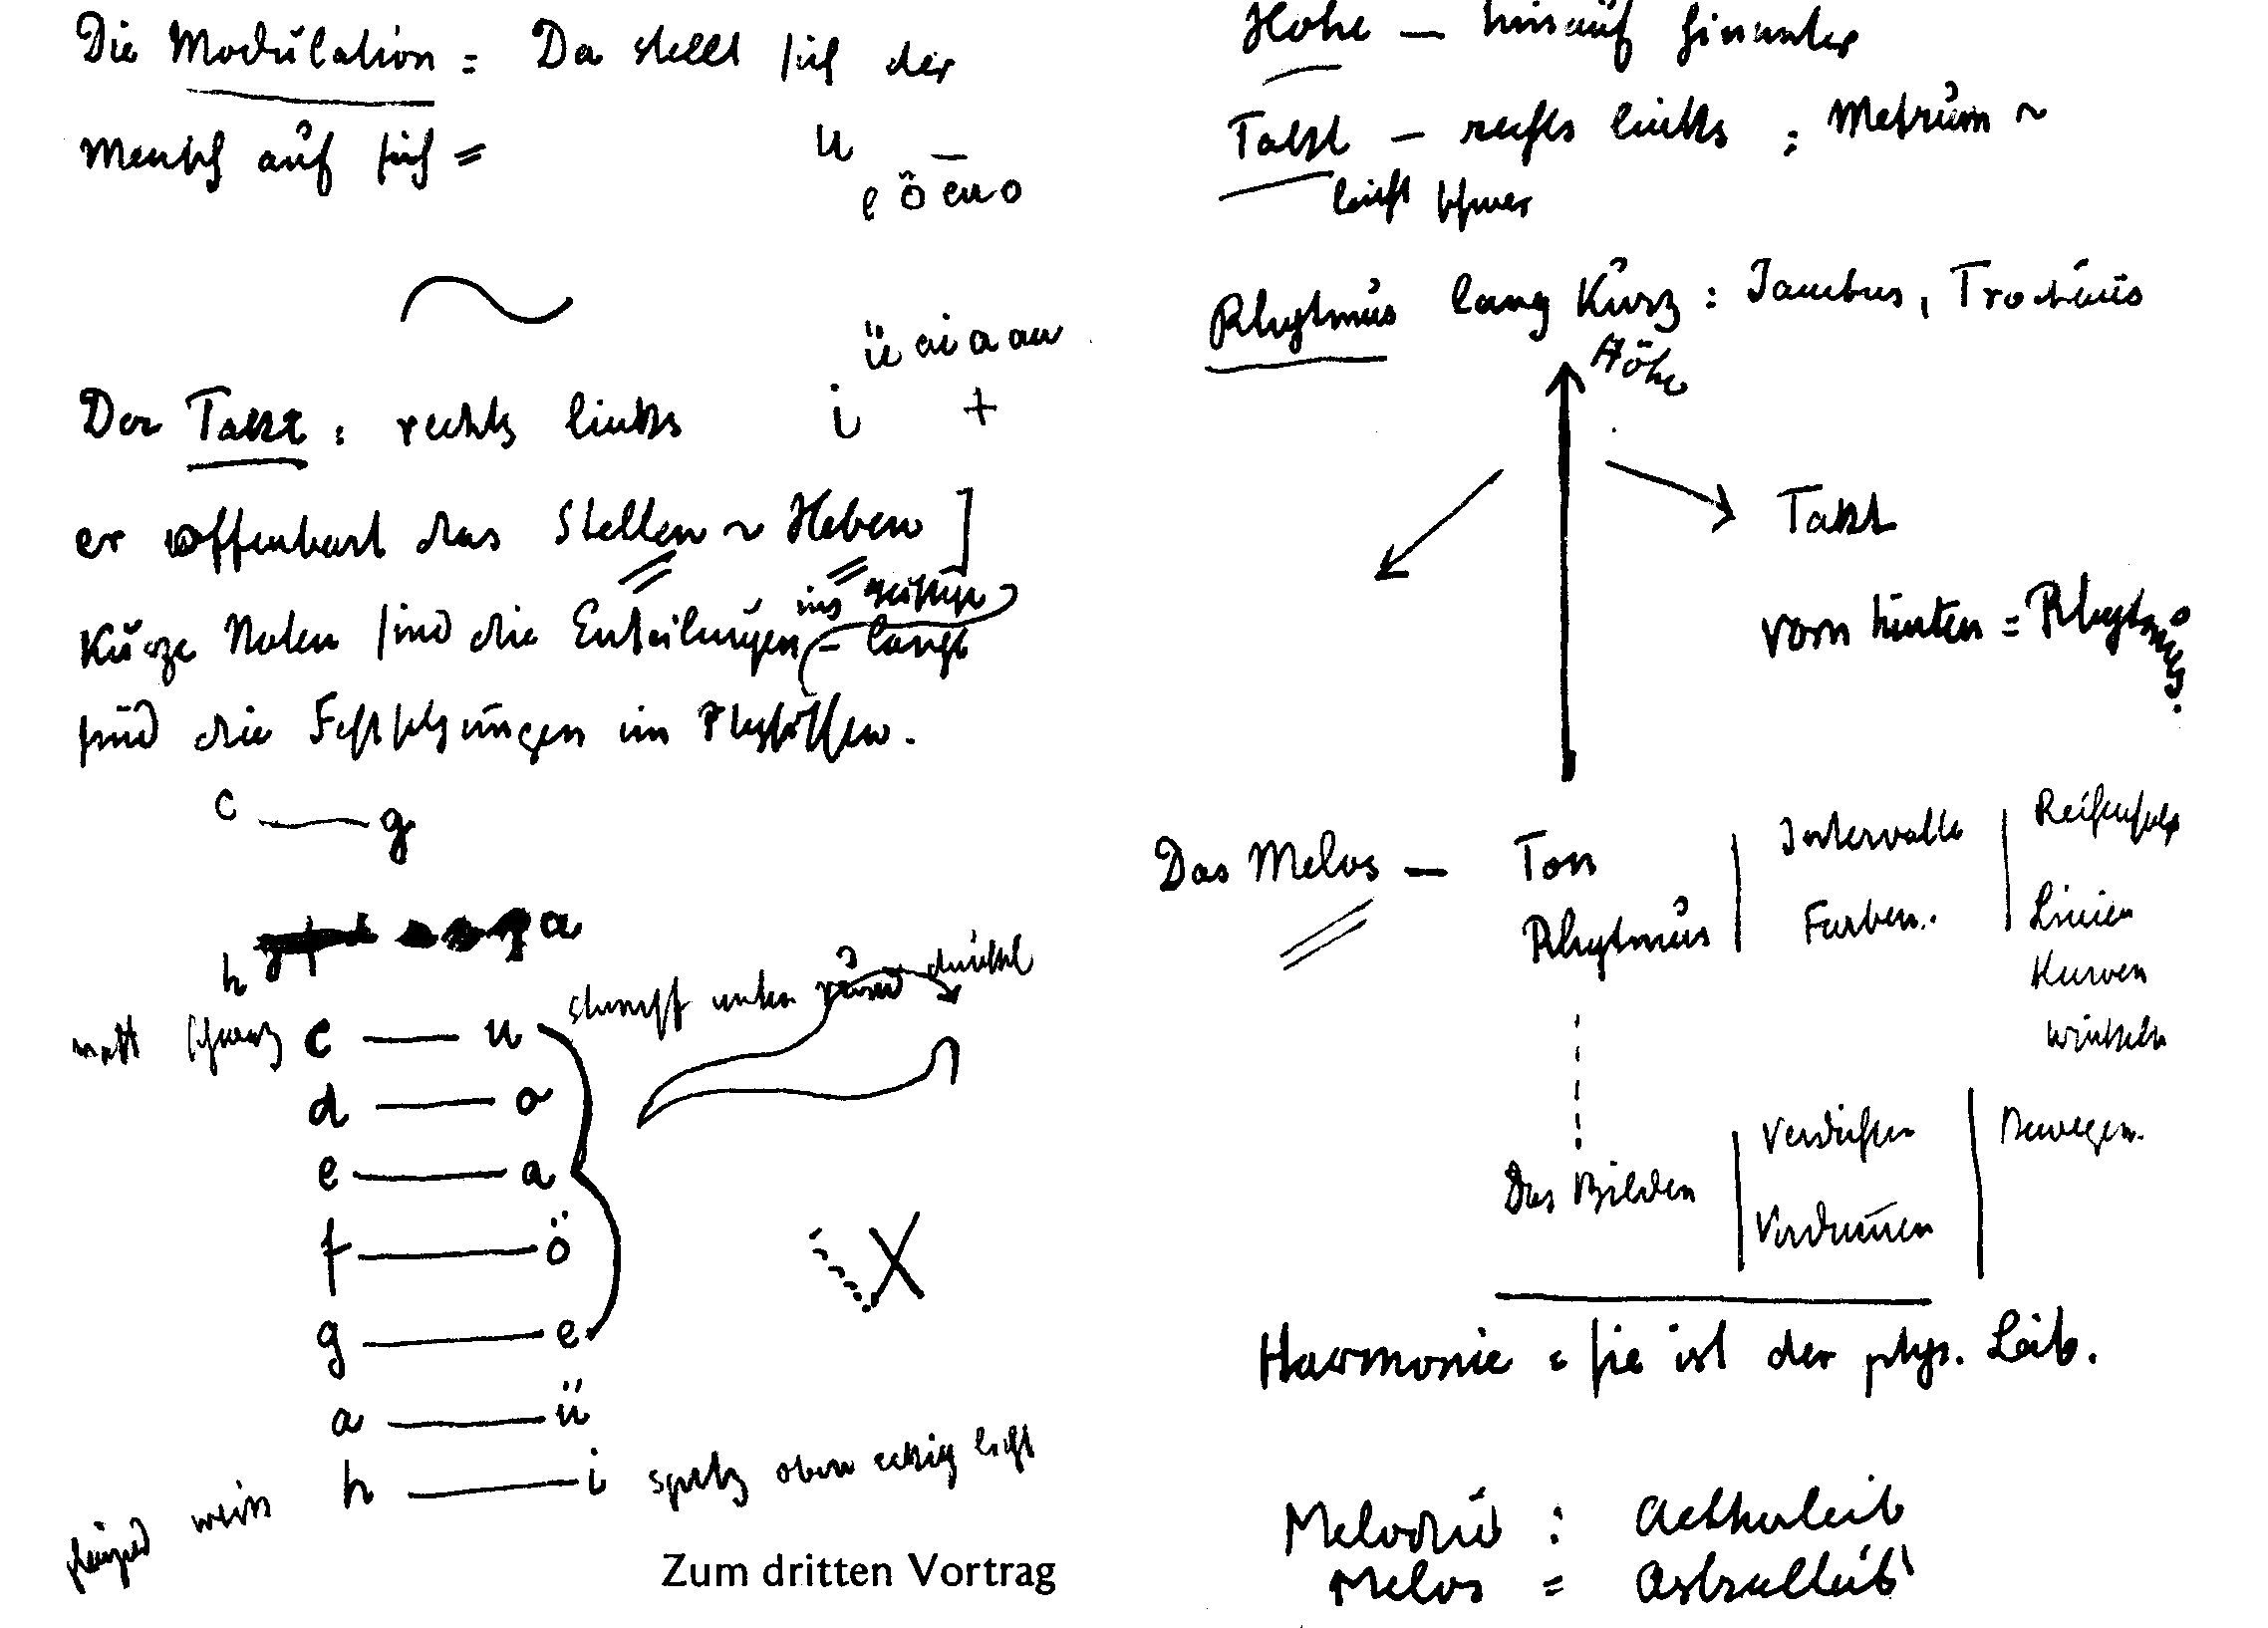 Die Modulation = Da stellt sich der
Mensch auf sich =
u
—
e ö eu o
ü ei a au
Der Takt : rechts links i +
er offenbart das Stellen ~ Heben ]
ins geistige
Kurze Noten sind die Enteilungen – lange
sind die Festsetzungen im Physischen.
c — g
a
h
matt schwarz c — u stumpf unten rund dunkel
d — o
e — a
f — ö
g — e
a — ü
h — i spitz oben eckig licht
glänzend weiss
Zum dritten Vortrag
Höhe — hinauf hinunter
Takt — rechts links ; Metrum ~
leicht schwer
Rhytmus lang kurz : Jambus, Trochäus
Höhe
Takt
vorn hinten = Rhytmus.
Das Melos — Ton | Intervalle | Reihenfolge
Rhytmus | Farben. | Linien
Kurven
Winkeln
Das Bilden | Verdichten | Bewegen.
Verdünnen
Harmonie = sie ist der phys. Leib.
Melodie : Aetherleib
Melos = Astralleib